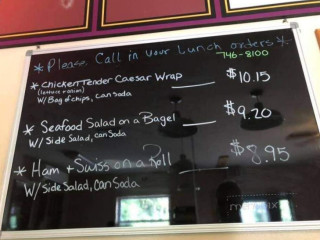 * Please Call in Your Lunch orders *
746-8100
* Chicken Tender Caesar Wrap $10.15
(lettuce + onion)
W/ Bag of chips, can soda
* Seafood Salad on a Bagel $9.20
W/ Side Salad, Can Soda
* Ham + Swiss on a Roll $8.95
W/ Side Salad, Can Soda